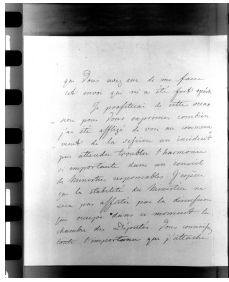 que vous avez eue de me faire
cet envoi qui m'a été fort agréa
Je profiterai de cette occa
sion pour vous exprimer combien
j'ai été affligé de voir au commence
ment de la session un incident
que attendre troubler l'harmonie
si importante dans un conseil
de Ministres responsables. J'espère
que la stabilité du Ministère ne
sera pas affectée par la discussion
qui occupe dans ce moment la
chambre des Députés. Vous connaissez
toute l'importance que j'attache